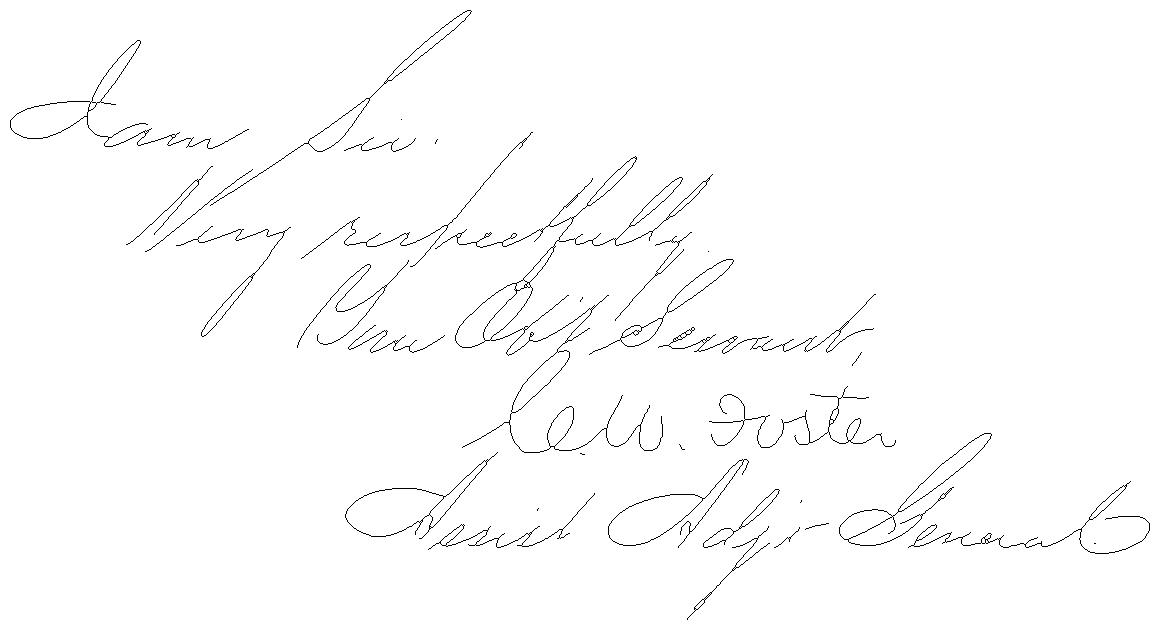 I am Sir.
Very respectfully.
Your Ob't Servant,
C.W. Foster
Assist Adjt General.